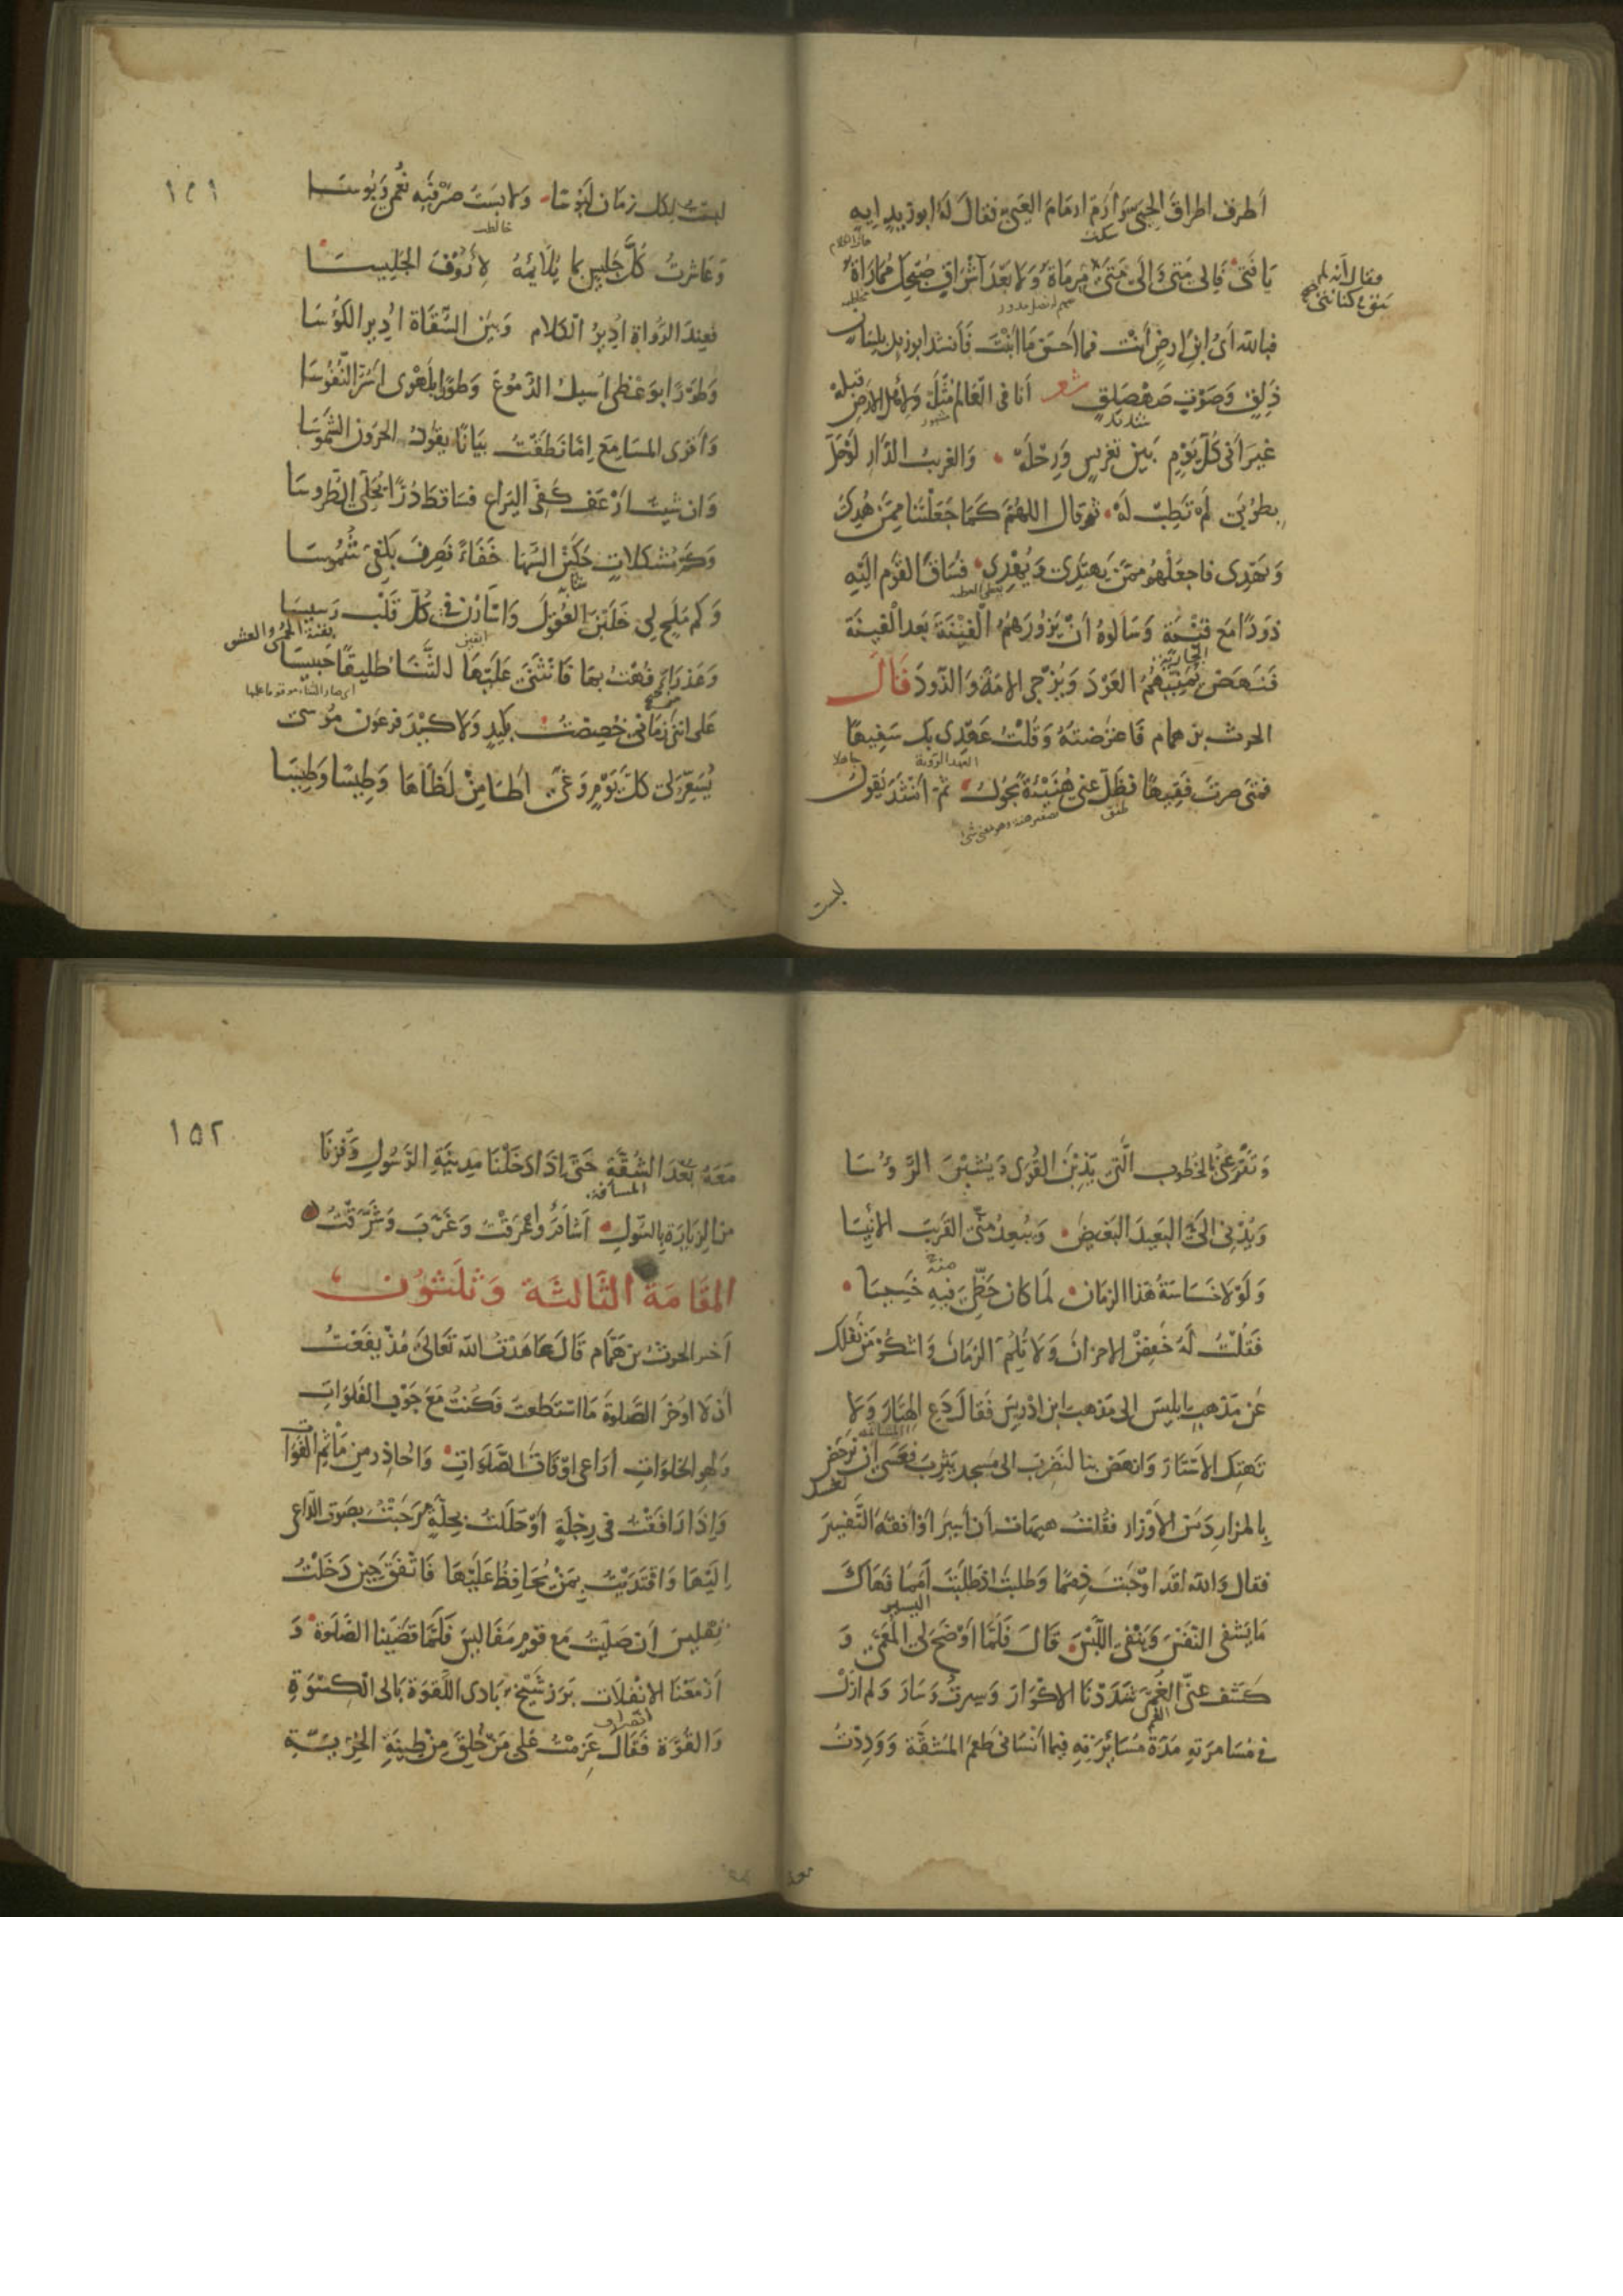 أطرف اطراق الحيى وأرم ارمام العيى فقال له ابو زيد ايه
سكت
يا فتى فالى متى والى متى
فقال انه لم
يبق في كنانتي
مرماة ولا بعد اشراق صبحك مماراة
فبالله اى ابن ارض أنت فما أحسن ما ابنت فأنشد ابو زيد بلسان
ذلق وصوت صهصلق شعر أنا في العالم مثله ولأهل الارض قبله
شديد
غير أنى كل يوم بين تعريس ورحله والغريب الدار لو حل
بطوبى لم تطب له ثم قال اللهم كما جعلتنا ممن هدى
ويهدى فاجعلهم ممن يهتدى ويهدى فساق القوم اليه
ذودا مع قينة وسألوه أن يزورهم الفينة بعد الفينة
الجارية
فنهض يمنيهم العود ويزجى الامة والذود قال
الحرث بن همام فاعترضته وقلت عهدى بك سفيها
جاهلا
فمتى صرت فقيها فظل عنى هنيئة يجول ثم أنشد يقول
طفق
لبست
١٥١
لبست لكل زمان لبوسا ولابست صرفيه نعمى وبوسا
خالطت
وعاشرت كل جليس بما يلائمه لأروق الجليسا
فعند الرواة ادير الكلام وبين السقاة ادير الكؤسا
وطورا بوعظى أسيل الدموع وطورا بلهوى اسر النفوسا
وأقرى المسامع إما نطقت بيانا يقود الحرون الشموسا
وان شيت ارعف كفى اليراع فساقط درا يحلى الطروسا
وكم مشكلات حكين السها خفاء فصرن بكشفى شموسا
وكم ملح لى خلبن العقول واسأرن فى كل قلب رسيسا
بقية الحمى والعشق
وعذراء فهت بها فانثنى عليها الثناء طليقا حبيسا
على اننى زمانى خصصت بكيد ولا كيد فرعون موسى
يسعر لى كل يوم وغى أطا من لظاها وطيسا وطيسا
وتقرعنى بالخطوب التى يذبن القوى ويشيبن الرؤسا
ويدنى الى البعيد البغيض ويبعد عنى القريب الانيسا
ولولا خساسة هذا الزمان لما كان حظى فيه خسيسا
منه
فقلت له خفض الاحزان ولا تلم الزمان واشكر من نقلك
عن مذهب ابليس الى مذهب ابن ادريس فقال دع الهتار ولا
تهتك الاستار وانهض بنا لنضرب الى مسجد يثرب فعسى ان نرحض
نغسل
بالمزار درن الأوزار فقلت هيهات أن أسير او أفقه التفسير
فقال والله لقد اوجبت ذمما وطلبت اذ طلبت أمما فهاك
اليسير
ما يشفى النفس وينفى اللبس قال فلما أوضح لى المعمى و
كشف عنى الغمى شددنا الاكوار وسرت وسار ولم ازل
الغم
فى مسامرته مدة مسايرته فيما أنسانى طعم المشقة ووددت
١٥٢
معه بعد الشقة حتى اذا دخلنا مدينة الرسول وفزنا
المسافة
من الزيارة بالسول أشام واعرقت وغرب وشرقت
المقامة الثالثة وثلثون
أخبر الحرث بن همام قال عاهدت الله تعالى مذ يفعت
أن لا اوخر الصلوة ما استطعت فكنت مع جوب الفلوات
ولهو الخلوات أراعى اوقات الصلوات واحاذر من ماثم الفوات
واذا رافقت فى رحلة أو حللت بحلة مرحبت بصوت الداعى
اليها واقتديت بمن يحافظ عليها فاتفق حين دخلت
تفليس أن صليت مع قوم مفاليس فلما قضينا الصلوة و
أزمعنا الانفلات برز شيخ بادى اللقوة بالى الكسوة
انصراف
والقوة فقال عزمت على من خلق من طينة الحرية